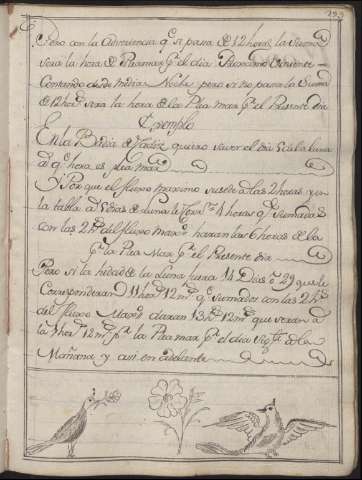 193
Pero con la Advertencia q.e si pasa de 12 horas, la Suma
sera la hora de Pleamar p.a el dia
Contando desde media Noche pero si no pasa la Suma
de 12 hor.s sera la hora de la Plea mar p.a el Presente dia
Exemplo
En la Bahia de Cadiz quiero saver el dia 5 de la Luna
a q.e hora es plea mar
Por que el fluxo maximo susede a las 2 horas, y en
la tabla a 5 dias de luna le 4 horas q.e sumadas
con las 2 h.s del fluxo max.o haran las 6 horas de la
p.a la Plea Mar p.a el Presente dia
Pero si la hedad de la Luna fuera 14 Dias o 29 que le
Corresponderan 11 hor.s 12 m.s q.e sumados con las 2 h.s
del fluxo Max.o daran 13 h.s 12 m.s que seran a
la 1 hor.a 12 m.s p.a la Plea mar p.a el dia sig.te a la
Mañana y asi en adelante